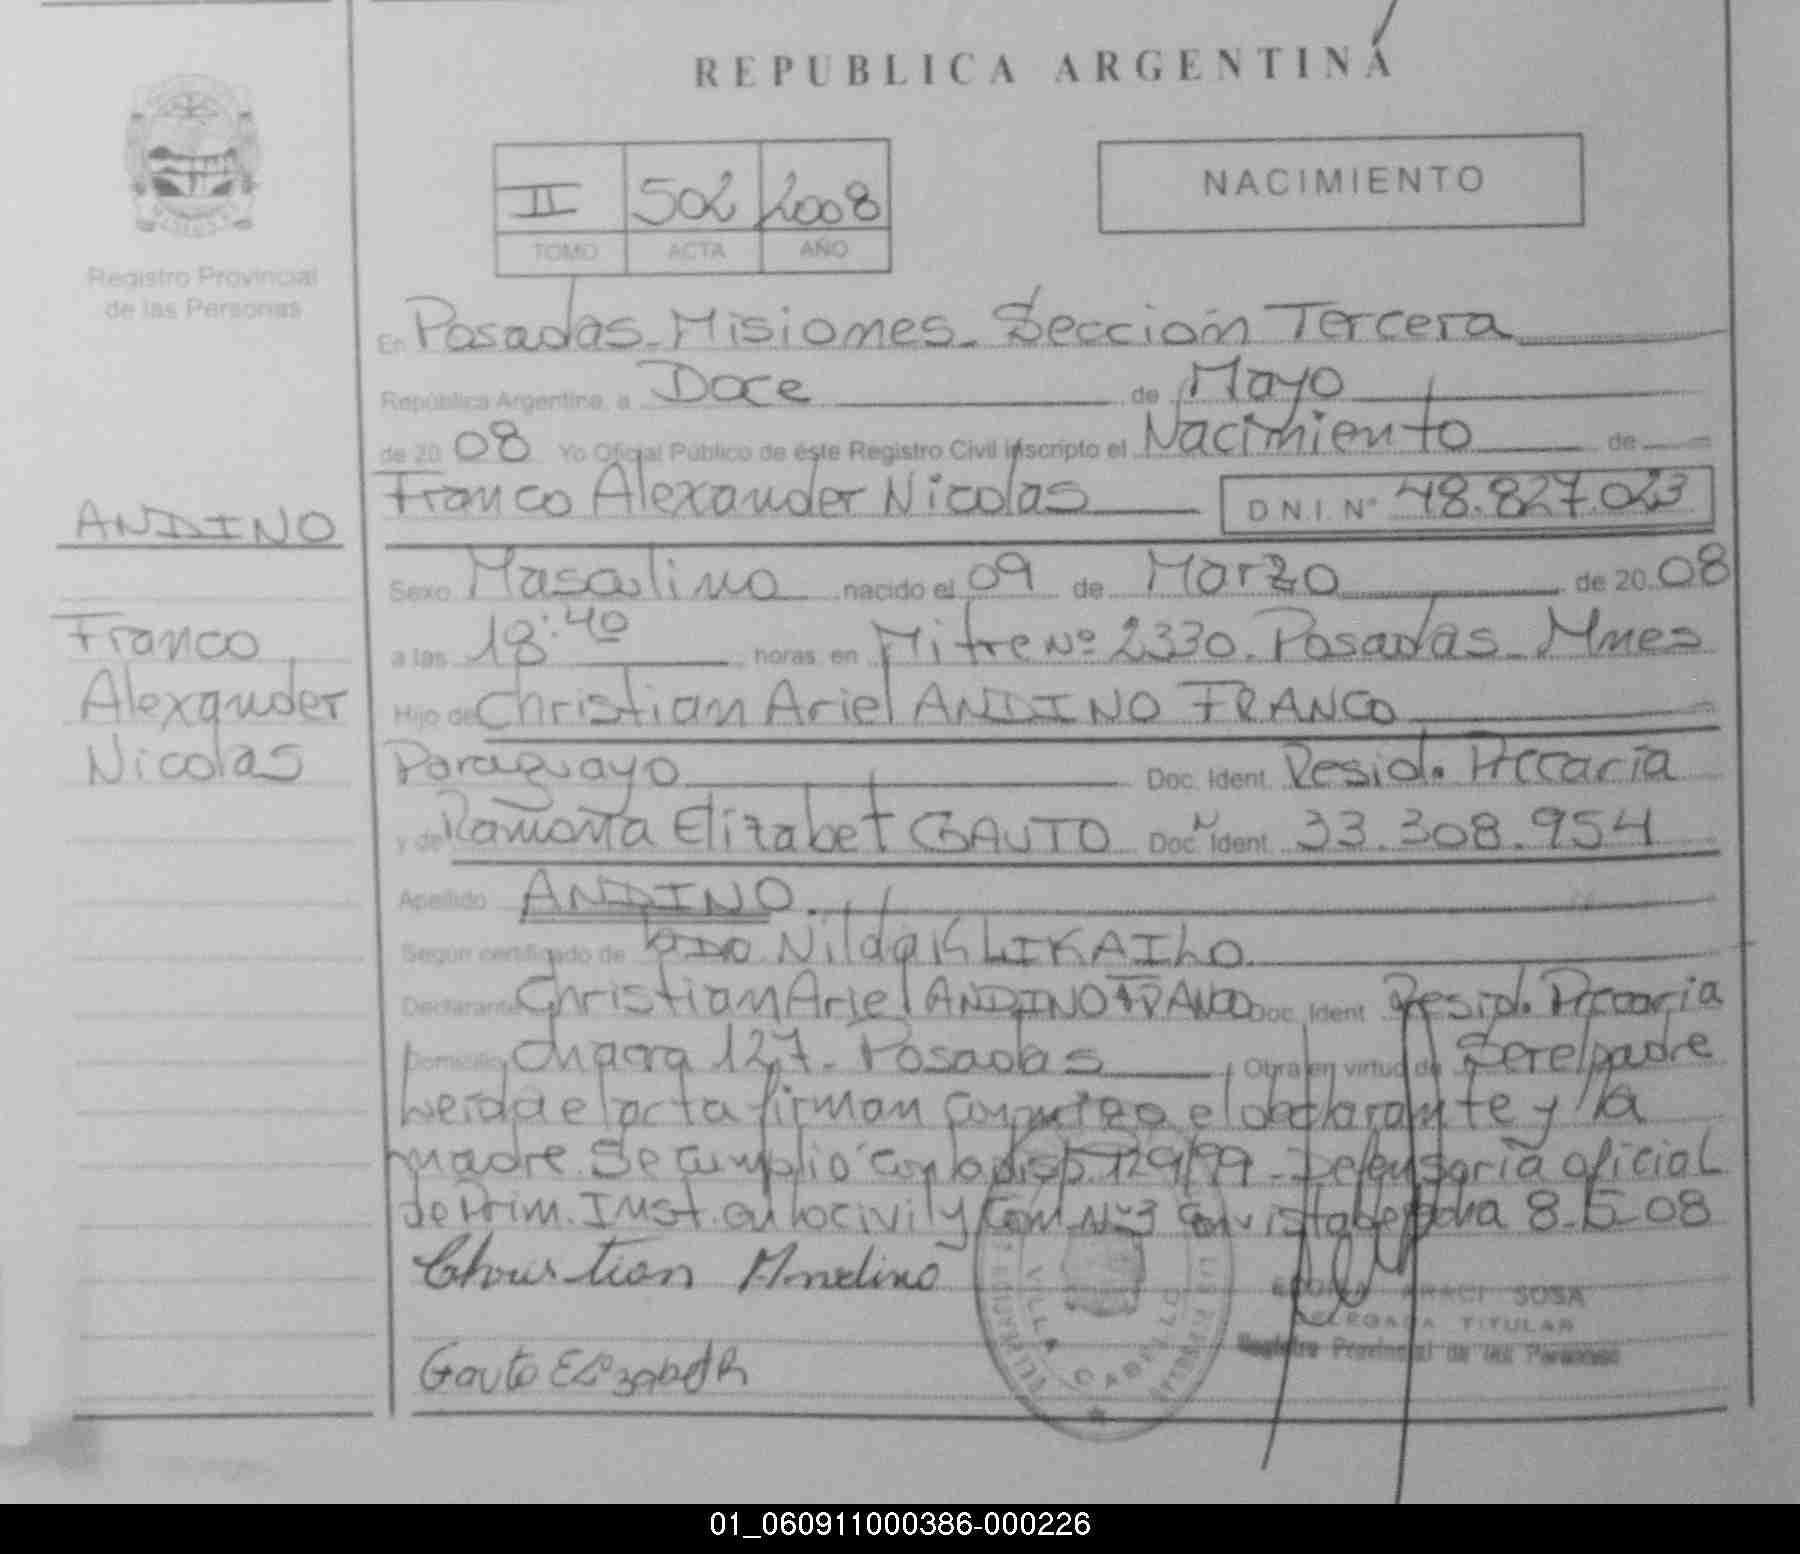 REPUBLICA ARGENTINA
II 502 2008
TOMO ACTA AÑO
NACIMIENTO
Registro Provincial
de las Personas
En Posadas - Misiones - Sección Tercera
República Argentina, a Doce de Mayo
de 20 08 Yo Oficial Público de éste Registro Civil inscripto el Nacimiento de
Franco Alexander Nicolas D N.I. N° 48.827.023
ANDINO
Franco
Alexander
Nicolas
Sexo Masculino nacido el 09 de Marzo de 20 08
a las 18:40 horas en Mitre Nº 2330. Posadas - Mnes
Hijo de Christian Ariel ANDINO FRANCO
Paraguayo Doc. Ident. Resid. Precaria
y de Ramona Elizabet GAUTO Doc. Ident. 33.308.954
Apellido ANDINO.
Según certificado de Nilda
Declarante Christian Ariel ANDINO FRANCO Doc. Ident. Resid. Precaria
Domicilio Chacra 127 - Posadas Obra en virtud de Ser el padre
Leida el acta firman conmigo el declarante y la
madre. Se cumplio con la disp. 129/99 - Defensoria oficial
de Prim. Inst. en lo civil y Com. Nº 3 con vista 8-5-08
Christian Andino
Gauto Elizabeth
VILLA CABELLO
ARACI SOSA
DELEGADA TITULAR
Registro Provincial de las Personas
01_060911000386-000226